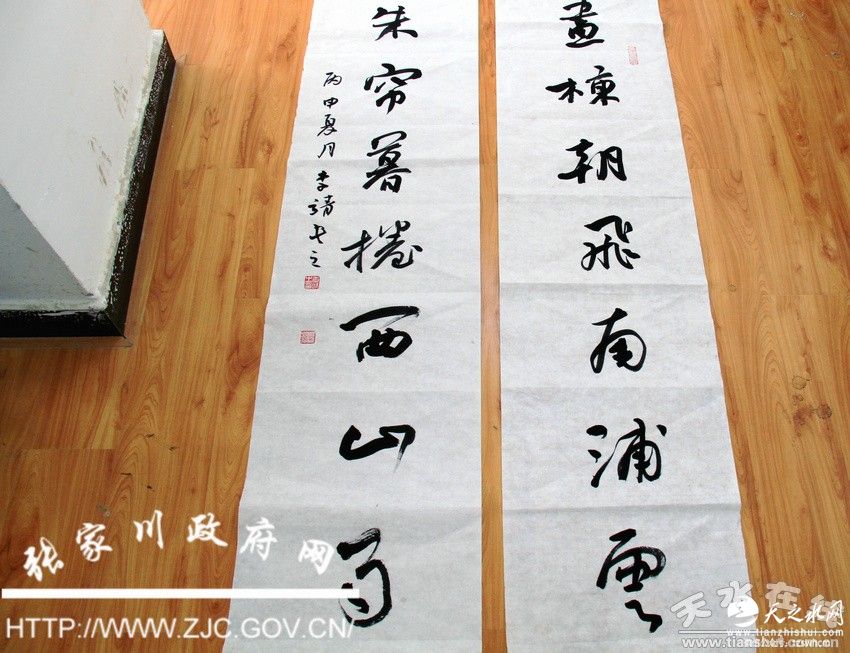 畫棟朝飛南浦雲
朱帘暮捲西山雨
丙申夏月李靖書
张家川政府网
HTTP://WWW.ZJC.GOV.CN/
天水在线
www.tianshui.com.cn
天之水网
www.tianzhishui.com